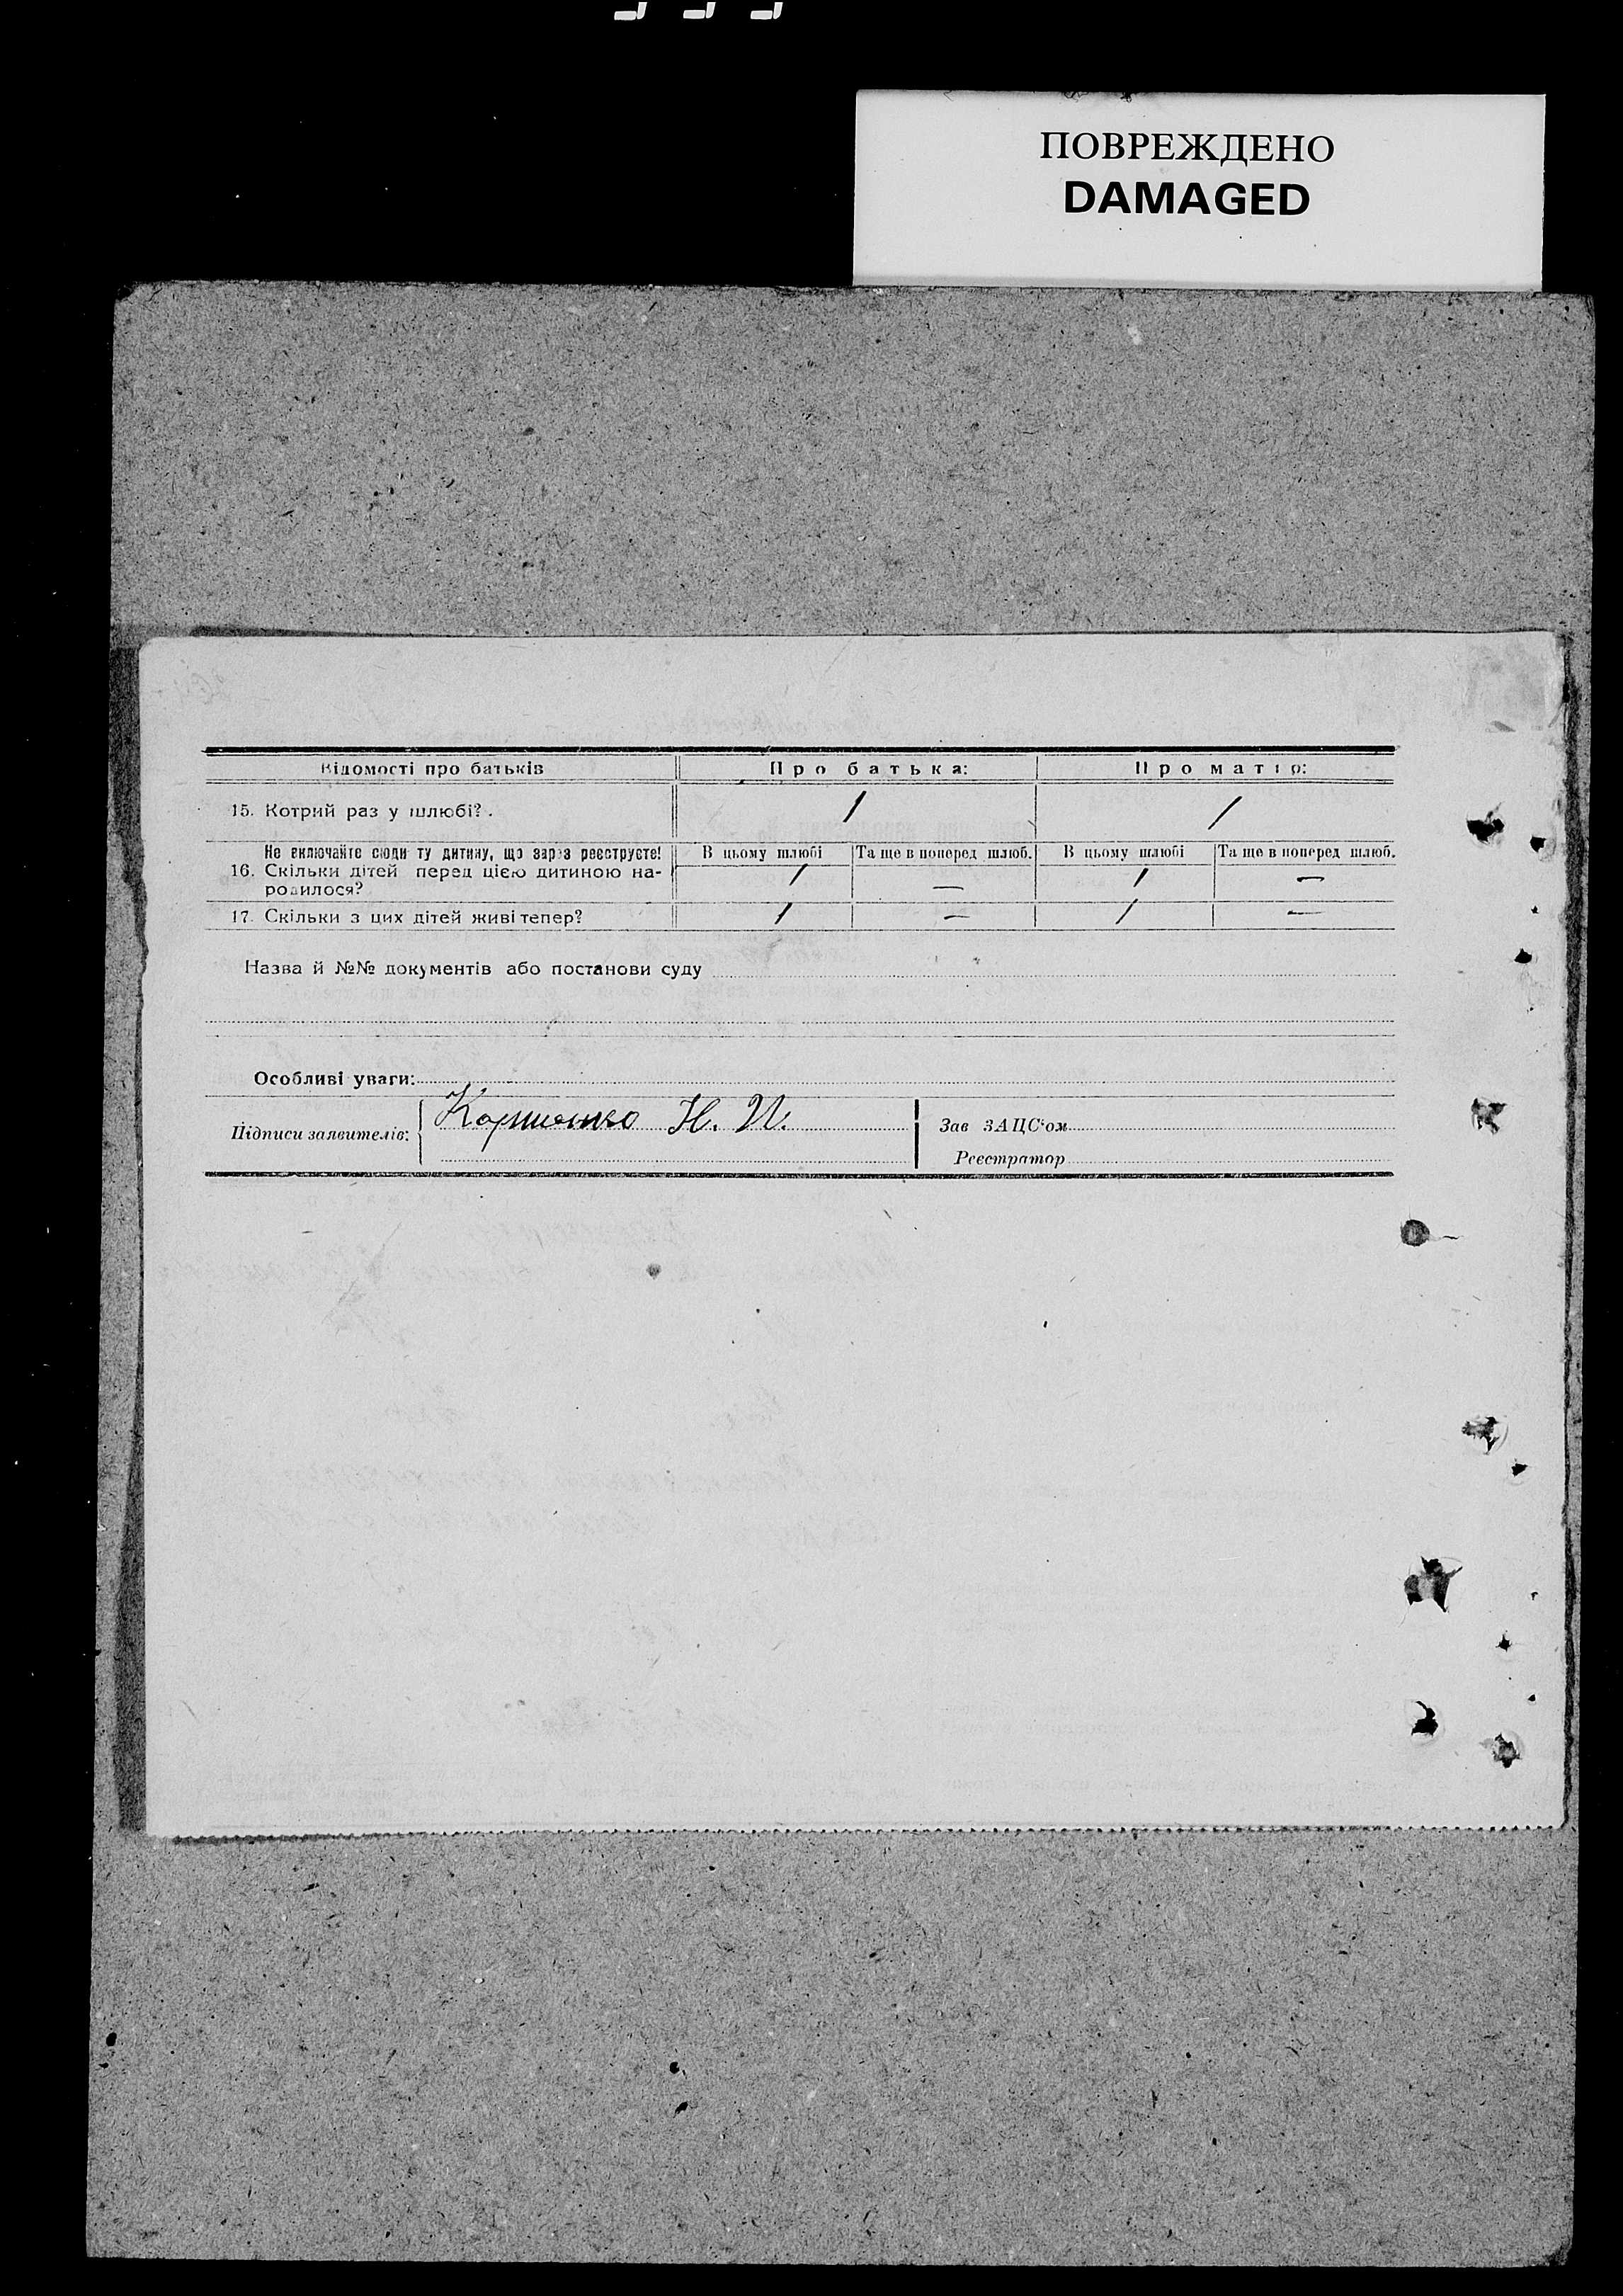 ПОВРЕЖДЕНО
DAMAGED
Відомості про батьків Про батька: Про матір:
15. Котрий раз у шлюбі?. 1 1
Не включайте сюди ту дитину, що зараз реєструєте! В цьому шлюбі Та ще в поперед шлюб. В цьому шлюбі Та ще в поперед шлюб.
16. Скільки дітей перед цією дитиною на- 1 — 1 —
родилося?
17. Скільки з цих дітей живі тепер? 1 — 1 —
Назва й №№ документів або постанови суду
Особливі уваги:
Підписи заявителів: Н. И. Зав ЗАЦС'ом
Реєстратор